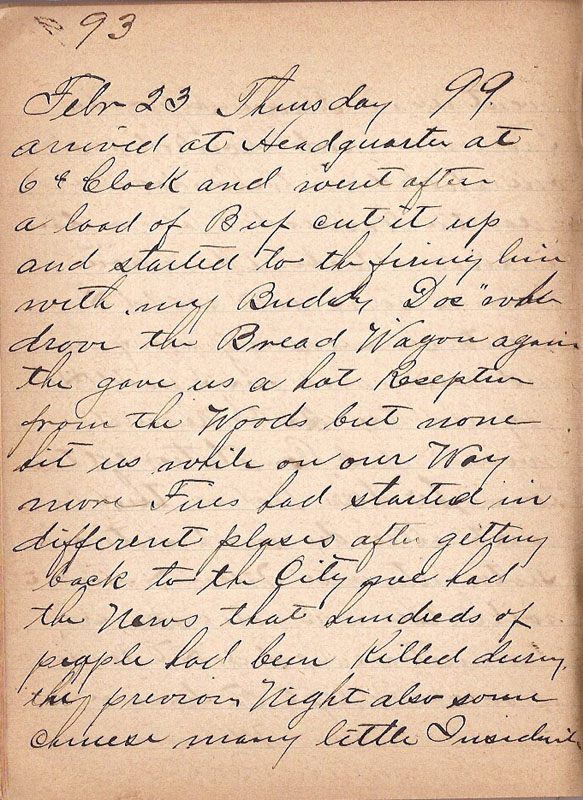 93
Febr 23 Thursday 99
arrived at Headquarter at
6 o Clock and went after
a load of Beef cut it up
and started to the firing line
with my Buddy "Doc" who
drove the Bread Wagon again
the gave us a hot Reseption
from the Woods but none
hit us while on our Way
more Fires had started in
different plases after getting
back to the City we had
the News that hundreds of
people had been Killed during
the previous Night also some
Chinese many little Insidents